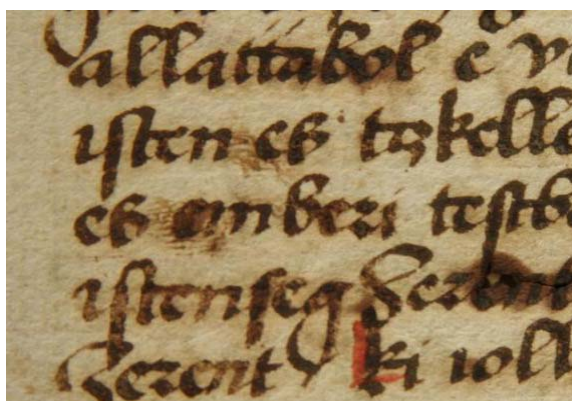 allattabol e v
isten es tǫkelle
es emberi testb
istenseg Zerent
Zerent ki ioll